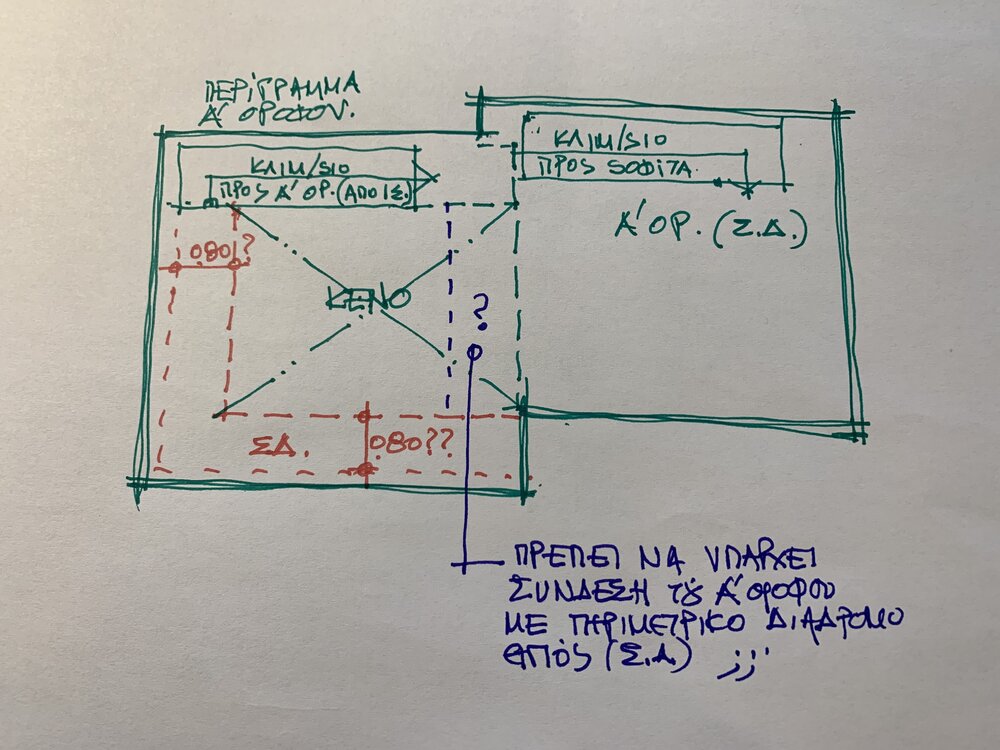 ΠΕΡΙΓΡΑΜΜΑ
Α' ΟΡΟΦΟΥ.
ΚΛΙΜ/SIO
ΠΡΟS Α' ΟΡ. (ΑΠΟ ΙΣ.)
ΚΛΙΜ/SIO
ΠΡΟS SΟΦΙΤΑ
Α' ΟΡ. (Σ.Δ.)
0.80?
ΚΕΝΟ
?
ΣΔ.
0.80??
ΠΡΕΠΕΙ ΝΑ ΥΠΑΡΧΕΙ
ΣΥΝΔΕΣΗ τȣ Α' ΟΡΟΦΟΥ
ΜΕ ΠΕΡΙΜΕΤΡΙΚΟ ΔΙΑΔΡΟΜΟ
(Σ.Δ.) ;;